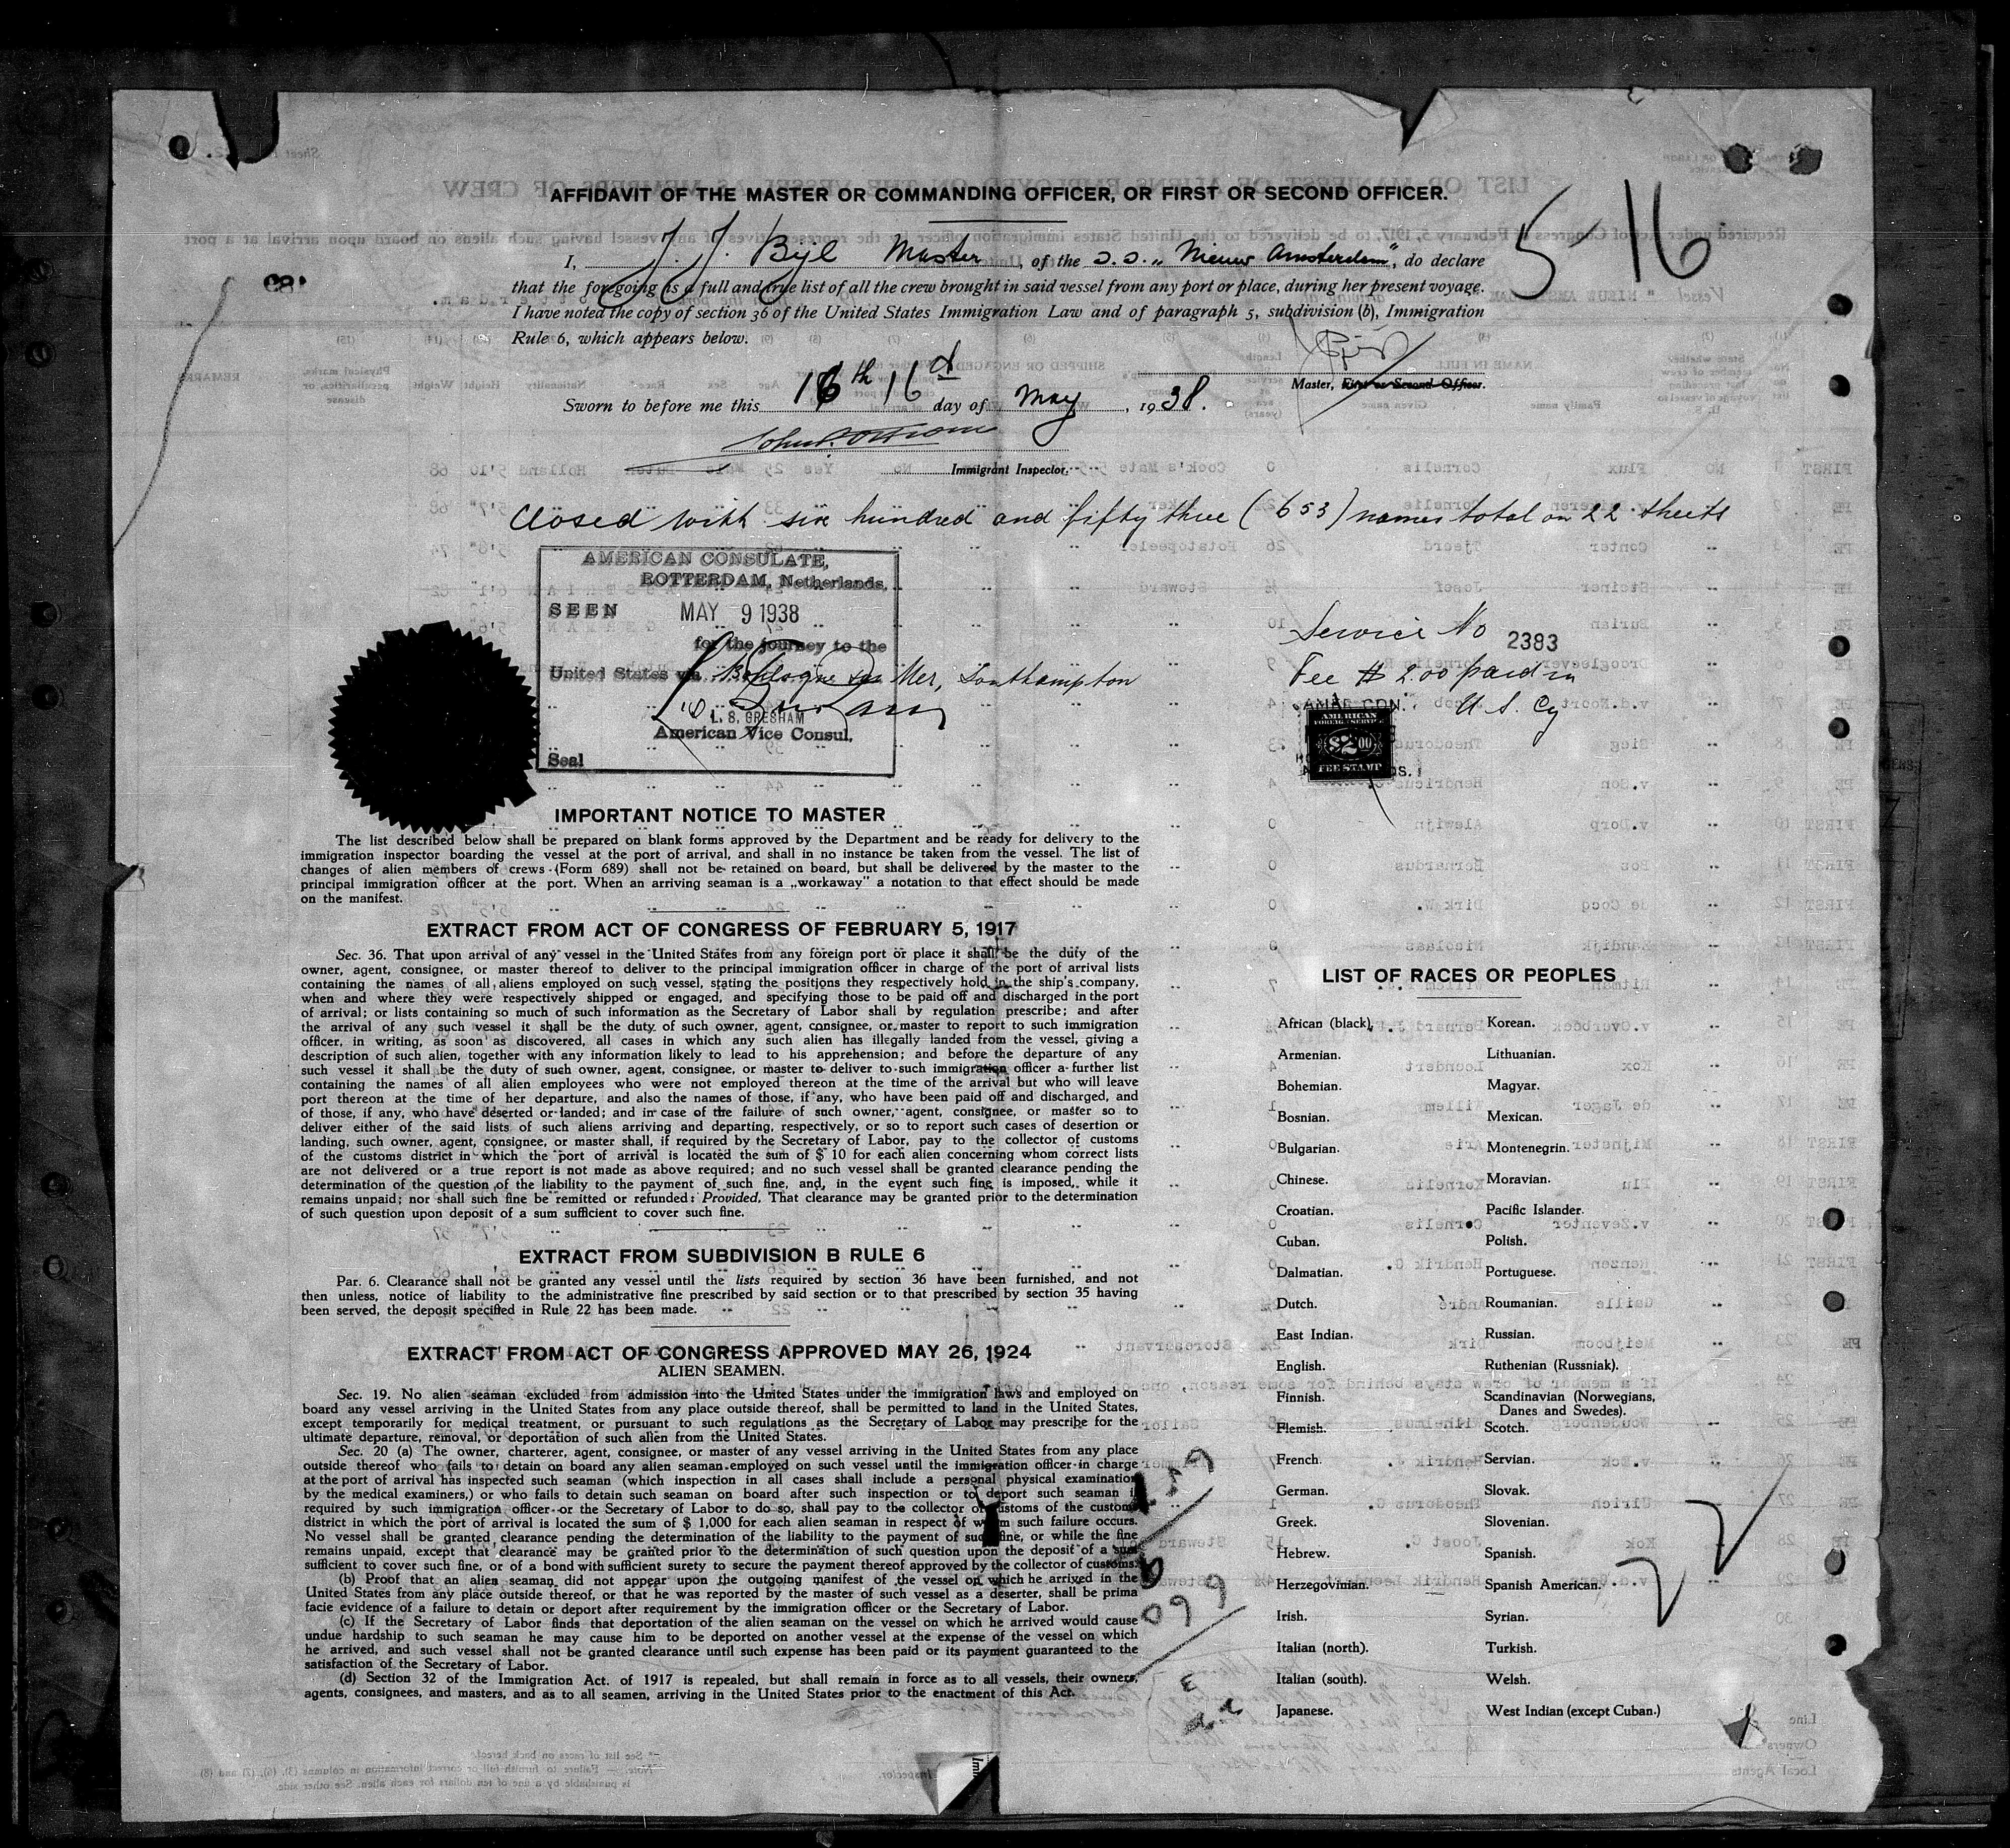 AFFIDAVIT OF THE MASTER OR COMMANDING OFFICER, OR FIRST OR SECOND OFFICER.
5 16
I, J. J. Bijl Master, of the S.S. „Nieuw Amsterdam", do declare
that the foregoing is a full and true list of all the crew brought in said vessel from any port or place, during her present voyage.
I have noted the copy of section 36 of the United States Immigration Law and of paragraph 5, subdivision (b), Immigration
Rule 6, which appears below.
Master, First or Second Officer.
Sworn to before me this 16th 16th day of May, 1938.
Immigrant Inspector.
Closed with six hundred and fifty three (653) names total on 22 sheets
AMERICAN CONSULATE,
ROTTERDAM, Netherlands.
SEEN MAY 9 1938
for the journey to the
United States via Boulogne sur Mer, Southampton
L. S. GRESHAM
American Vice Consul.
Seal
Service No 2383
Fee $ 2.00 paid in
U.S. Cy
AMERICAN
FOREIGN SERVICE
$2.00
FEE STAMP
IMPORTANT NOTICE TO MASTER
The list described below shall be prepared on blank forms approved by the Department and be ready for delivery to the
immigration inspector boarding the vessel at the port of arrival, and shall in no instance be taken from the vessel. The list of
changes of alien members of crews (Form 689) shall not be retained on board, but shall be delivered by the master to the
principal immigration officer at the port. When an arriving seaman is a „workaway" a notation to that effect should be made
on the manifest.
EXTRACT FROM ACT OF CONGRESS OF FEBRUARY 5, 1917
Sec. 36. That upon arrival of any vessel in the United States from any foreign port or place it shall be the duty of the
owner, agent, consignee, or master thereof to deliver to the principal immigration officer in charge of the port of arrival lists
containing the names of all aliens employed on such vessel, stating the positions they respectively hold in the ship's company,
when and where they were respectively shipped or engaged, and specifying those to be paid off and discharged in the port
of arrival; or lists containing so much of such information as the Secretary of Labor shall by regulation prescribe; and after
the arrival of any such vessel it shall be the duty of such owner, agent, consignee, or master to report to such immigration
officer, in writing, as soon as discovered, all cases in which any such alien has illegally landed from the vessel, giving a
description of such alien, together with any information likely to lead to his apprehension; and before the departure of any
such vessel it shall be the duty of such owner, agent, consignee, or master to deliver to such immigration officer a further list
containing the names of all alien employees who were not employed thereon at the time of the arrival but who will leave
port thereon at the time of her departure, and also the names of those, if any, who have been paid off and discharged, and
of those, if any, who have deserted or landed; and in case of the failure of such owner, agent, consignee, or master so to
deliver either of the said lists of such aliens arriving and departing, respectively, or so to report such cases of desertion or
landing, such owner, agent, consignee, or master shall, if required by the Secretary of Labor, pay to the collector of customs
of the customs district in which the port of arrival is located the sum of $ 10 for each alien concerning whom correct lists
are not delivered or a true report is not made as above required; and no such vessel shall be granted clearance pending the
determination of the question of the liability to the payment of such fine, and, in the event such fine is imposed, while it
remains unpaid; nor shall such fine be remitted or refunded: Provided, That clearance may be granted prior to the determination
of such question upon deposit of a sum sufficient to cover such fine.
EXTRACT FROM SUBDIVISION B RULE 6
Par. 6. Clearance shall not be granted any vessel until the lists required by section 36 have been furnished, and not
then unless, notice of liability to the administrative fine prescribed by said section or to that prescribed by section 35 having
been served, the deposit specified in Rule 22 has been made.
EXTRACT FROM ACT OF CONGRESS APPROVED MAY 26, 1924
ALIEN SEAMEN.
Sec. 19. No alien seaman excluded from admission into the United States under the immigration laws and employed on
board any vessel arriving in the United States from any place outside thereof, shall be permitted to land in the United States,
except temporarily for medical treatment, or pursuant to such regulations as the Secretary of Labor may prescribe for the
ultimate departure, removal, or deportation of such alien from the United States.
Sec. 20 (a) The owner, charterer, agent, consignee, or master of any vessel arriving in the United States from any place
outside thereof who fails to detain on board any alien seaman employed on such vessel until the immigration officer in charge
at the port of arrival has inspected such seaman (which inspection in all cases shall include a personal physical examination
by the medical examiners,) or who fails to detain such seaman on board after such inspection or to deport such seaman if
required by such immigration officer or the Secretary of Labor to do so, shall pay to the collector of customs of the customs
district in which the port of arrival is located the sum of $ 1,000 for each alien seaman in respect of whom such failure occurs.
No vessel shall be granted clearance pending the determination of the liability to the payment of such fine, or while the fine
remains unpaid, except that clearance may be granted prior to the determination of such question upon the deposit of a sum
sufficient to cover such fine, or of a bond with sufficient surety to secure the payment thereof approved by the collector of customs.
(b) Proof that an alien seaman did not appear upon the outgoing manifest of the vessel on which he arrived in the
United States from any place outside thereof, or that he was reported by the master of such vessel as a deserter, shall be prima
facie evidence of a failure to detain or deport after requirement by the immigration officer or the Secretary of Labor.
(c) If the Secretary of Labor finds that deportation of the alien seaman on the vessel on which he arrived would cause
undue hardship to such seaman he may cause him to be deported on another vessel at the expense of the vessel on which
he arrived, and such vessel shall not be granted clearance until such expense has been paid or its payment guaranteed to the
satisfaction of the Secretary of Labor.
(d) Section 32 of the Immigration Act. of 1917 is repealed, but shall remain in force as to all vessels, their owners,
agents, consignees, and masters, and as to all seamen, arriving in the United States prior to the enactment of this Act.
LIST OF RACES OR PEOPLES
African (black). Korean.
Armenian. Lithuanian.
Bohemian. Magyar.
Bosnian. Mexican.
Bulgarian. Montenegrin.
Chinese. Moravian.
Croatian. Pacific Islander.
Cuban. Polish.
Dalmatian. Portuguese.
Dutch. Roumanian.
East Indian. Russian.
English. Ruthenian (Russniak).
Finnish. Scandinavian (Norwegians,
Danes and Swedes).
Flemish. Scotch.
French. Servian.
German. Slovak.
Greek. Slovenian.
Hebrew. Spanish.
Herzegovinian. Spanish American.
Irish. Syrian.
Italian (north). Turkish.
Italian (south). Welsh.
Japanese. West Indian (except Cuban.)